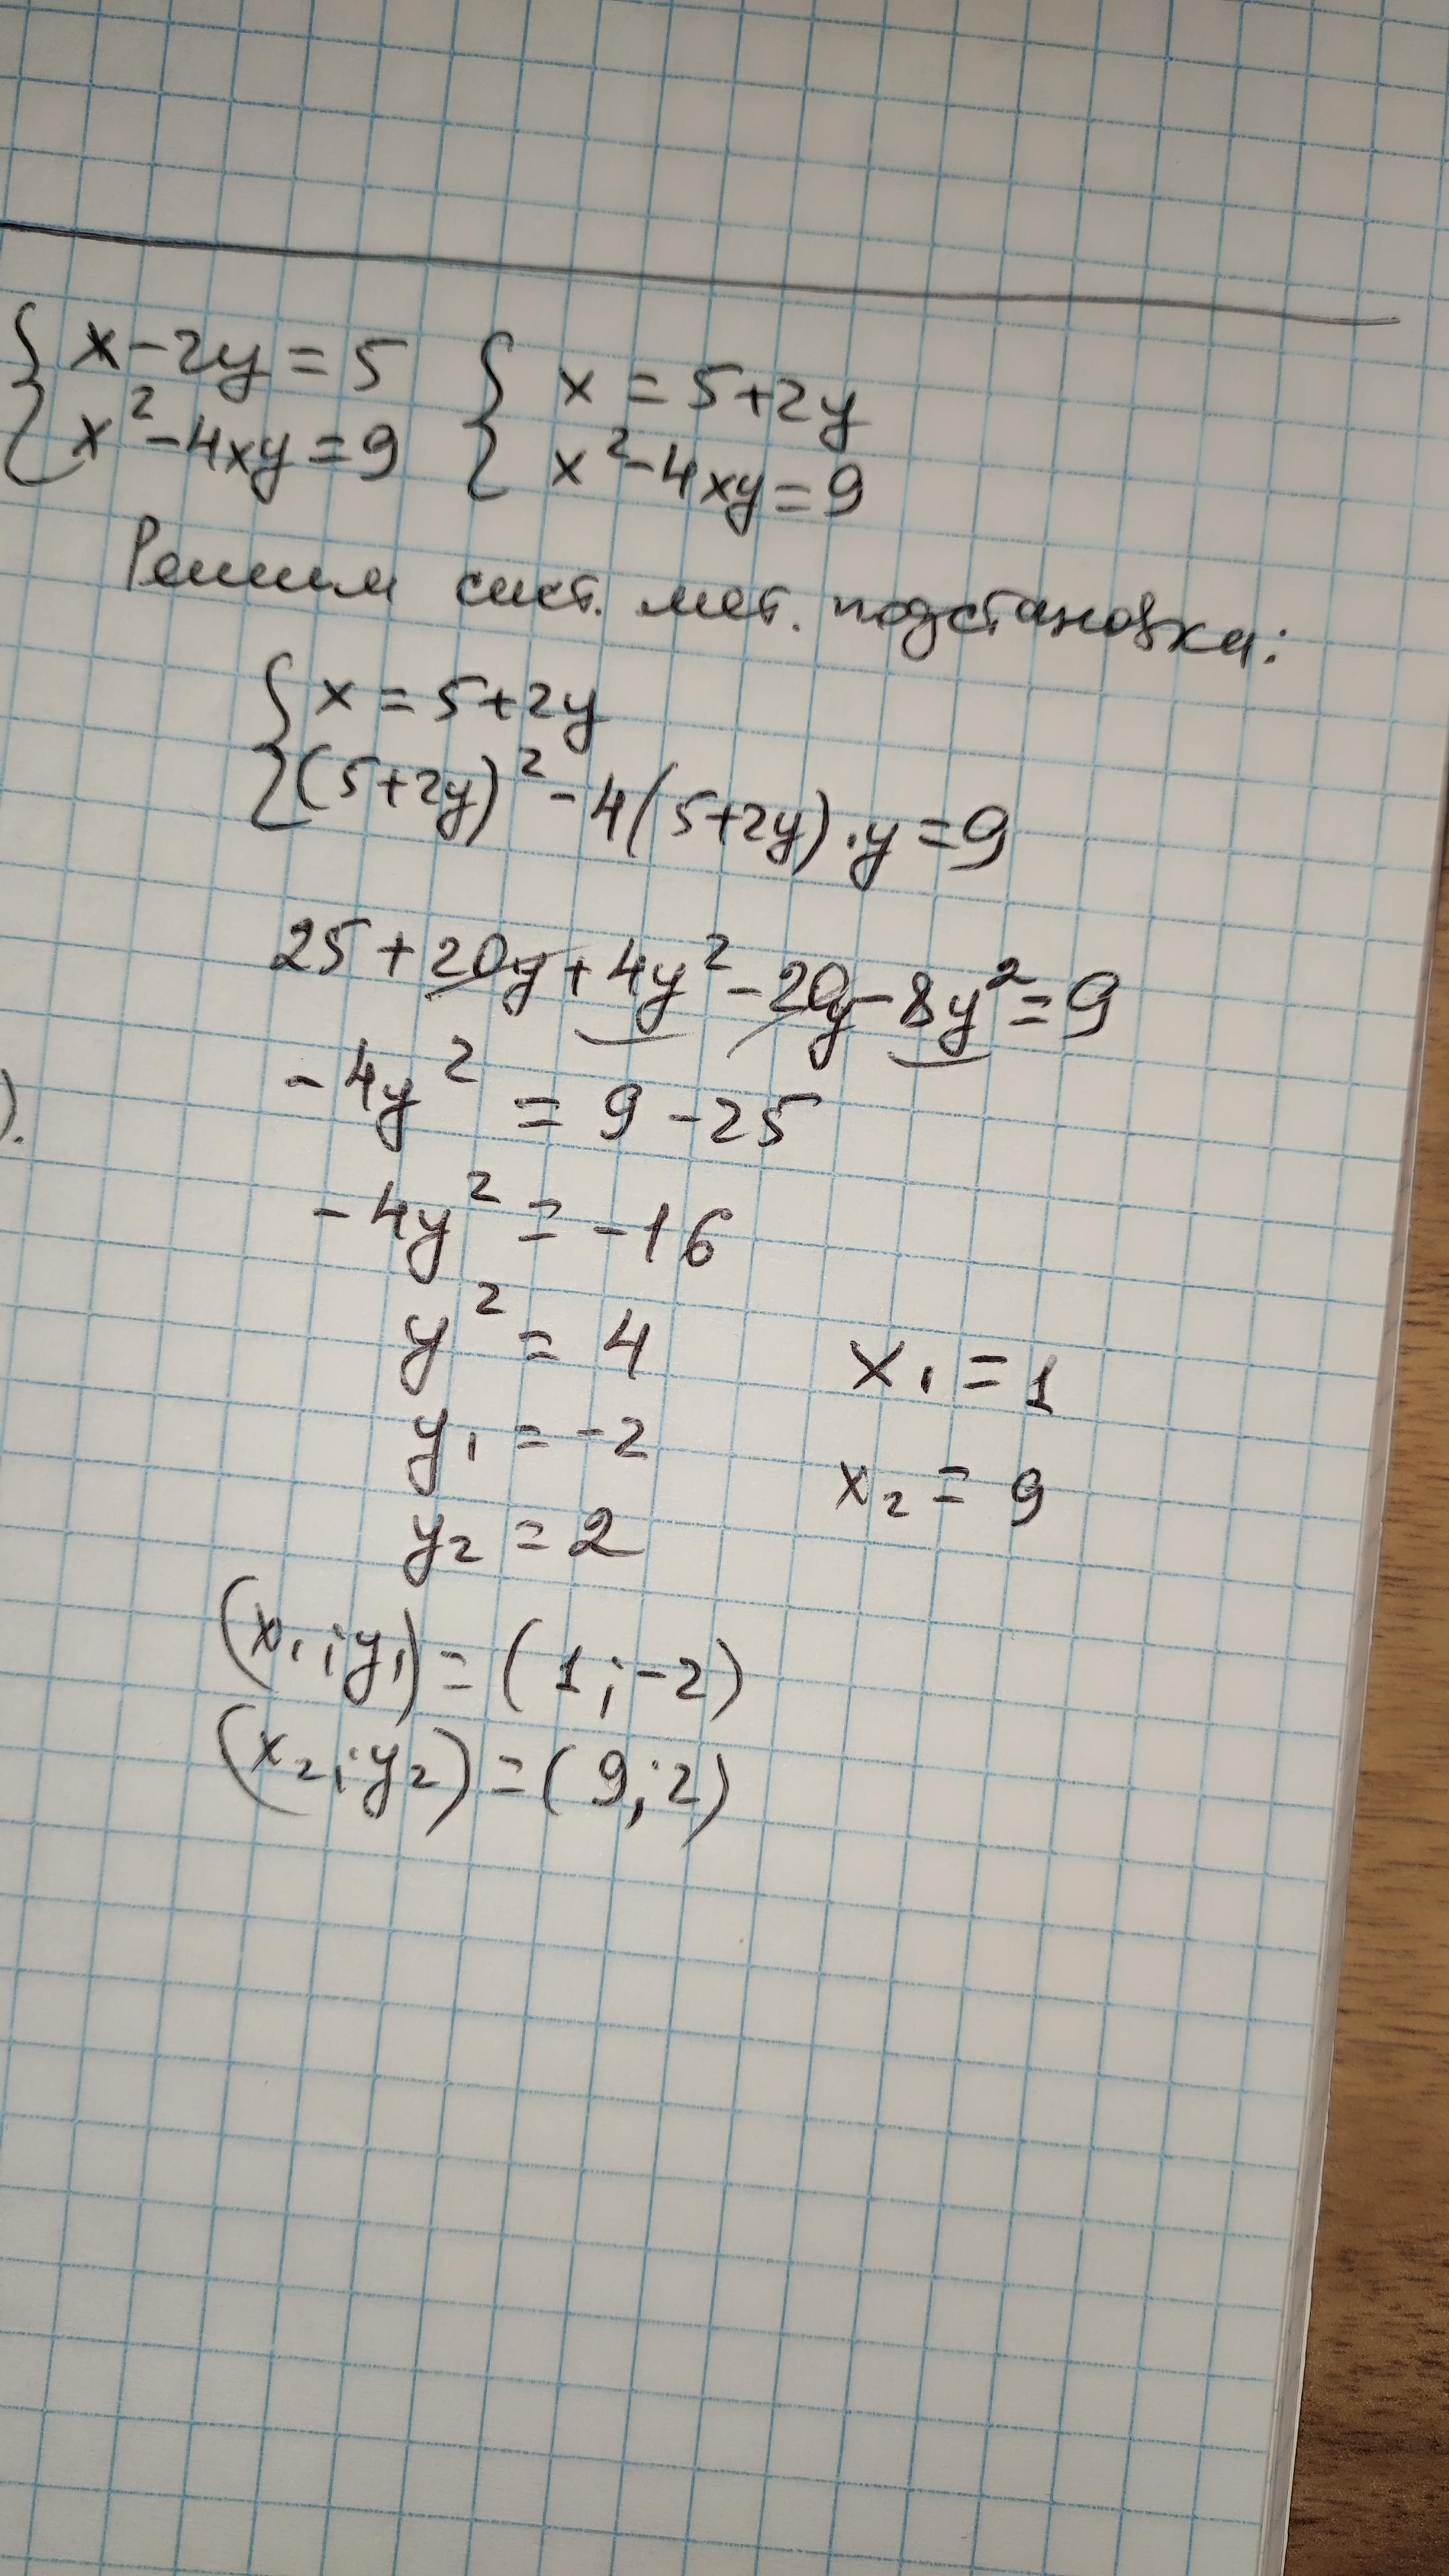 { x - 2y = 5 { x = 5+2y
{ x² - 4xy = 9 { x² - 4xy = 9
Решим сист. мет. подстановки:
{ x = 5+2y
{ (5+2y)² - 4(5+2y)·y = 9
25 + 20y + 4y² - 20y - 8y² = 9
-4y² = 9 - 25
).
-4y² = -16
y² = 4 x₁ = 1
y₁ = -2 x₂ = 9
y₂ = 2
(x₁; y₁) = (1; -2)
(x₂; y₂) = (9; 2)